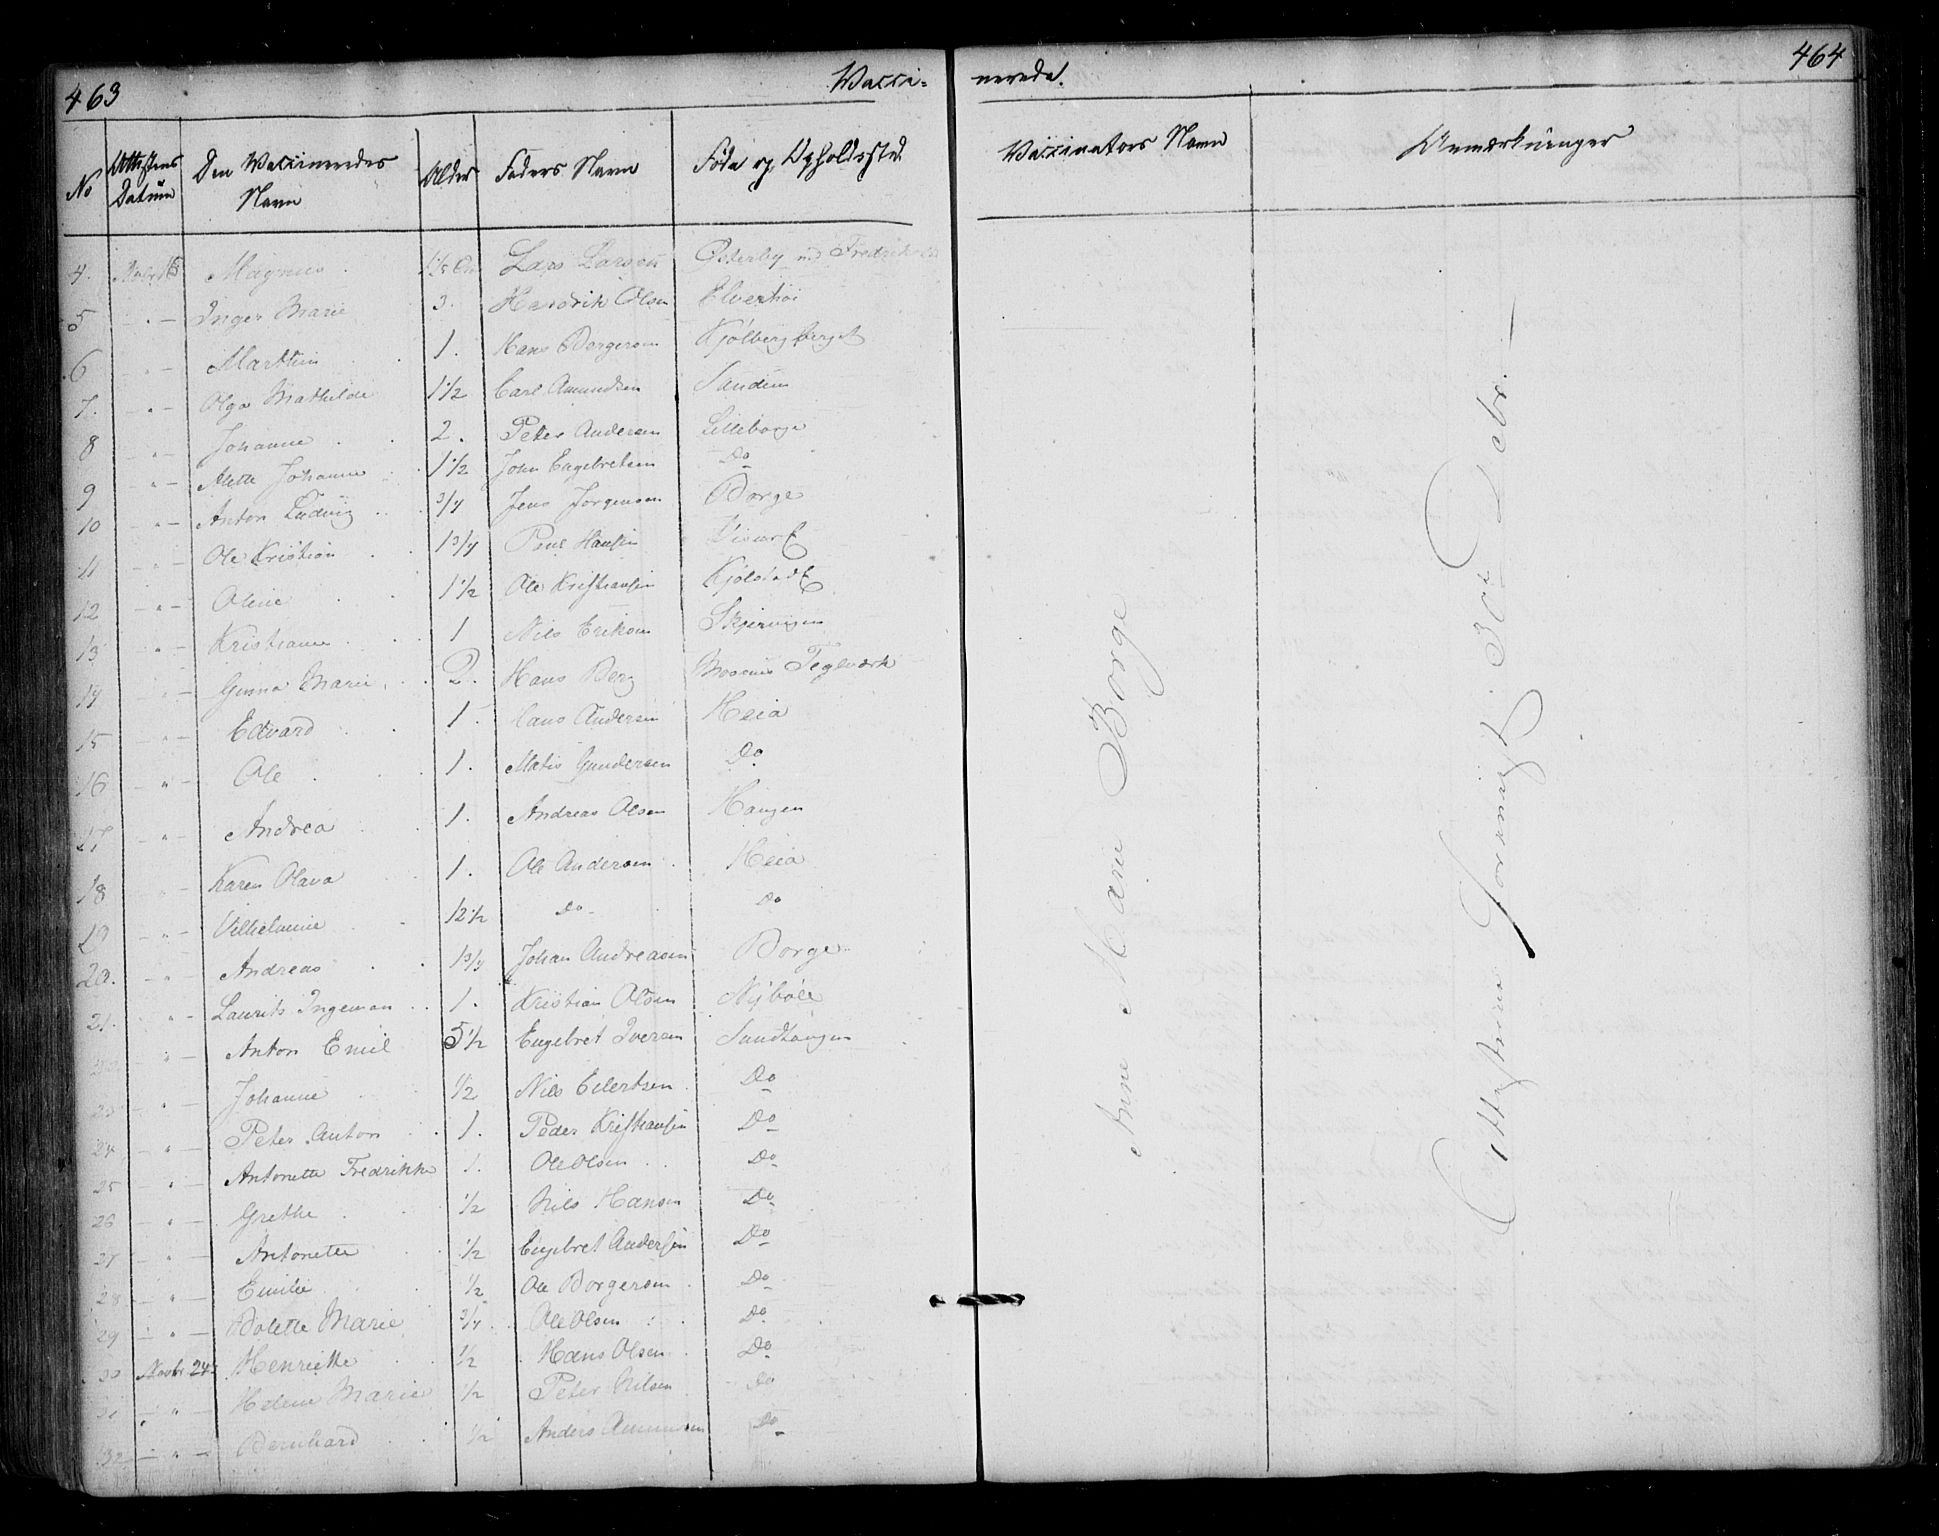 463
Vacci-
nerede.
464
No
Attestens Datum
Den Vaccineredes Navn
Alder
Faders Navn
Føde og Opholdssted
Vaccinators Navn
Anmærkninger
4. Magnus Lars Larsen Østerby
5 - " - Inger Marie 3. Hendrik Olsen
6 - " - Marthin 1. Hans Borgersen Kjølbergberget
7. - " - Olga Mathilde 1 1/2 Carl Amundsen Sandem
8 - " - Johanne 2. Peter Andersen Lilleborge
9 - " - Alette Johanne 1 1/2 John Engebretsen Do
10 - " - Anton Ludvig 3/4 Jens Jørgensen Borge
11 - " - Ole Kristian 1 3/4 Hansen
12 - " - Oline 1 1/2 Ole Kristiansen Kjølstad
13 - " - Kristiane 1 Nils Eriksen
14 - " - Marie 2. Hans Berg Teglværk
15 - " - Edvard 1. Hans Andersen Heia
16 - " - Ole 1. Matis Gundersen Do
17 - " - Andrea 1. Andreas Olsen Haugen
18 - " - Karen Olava 1. Ole Andersen Heia
19 - " - Vilhelmine 12 1/2 Do Do
20. - " - Andreas 1 3/4 Johan Andreasen Borge
21. - " - Laurits Ingeman 1. Kristian Olsen Nybøle
- " - Anton Emil 5 1/2 Engebret Iversen Sandhaugen
23 - " - Johanne 1/2 Nils Eilertsen Do
24 - " - Peter Anton 1. Peder Kristiansen Do
25 - " - Antonette Fredrikke 1. Ole Olsen Do
26 - " - Grethe 1/2 Nils Hansen Do
27 - " - Antonette 1/2 Engebret Andersen Do
28 - " - Emilie 1/2 Ole Borgersen Do
29 - " - Bolette Marie 3/4 Ole Olsen Do
30 Novbr 24 Henriette 1/2 Hans Olsen Do
31 - " - Helene Marie 1/2 Peter Nilsen Do
32 - " - Bernhard 1/2 Anders Amundsen Do
Anne Marie Borge
30te Debr.